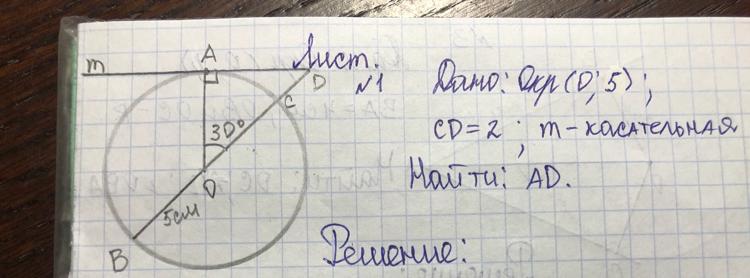 Лист.
№1
m
A
D
C
30°
O
5см
B
Дано: Окр(O; 5);
CD=2; m-касательная
Найти: AD.
Решение: